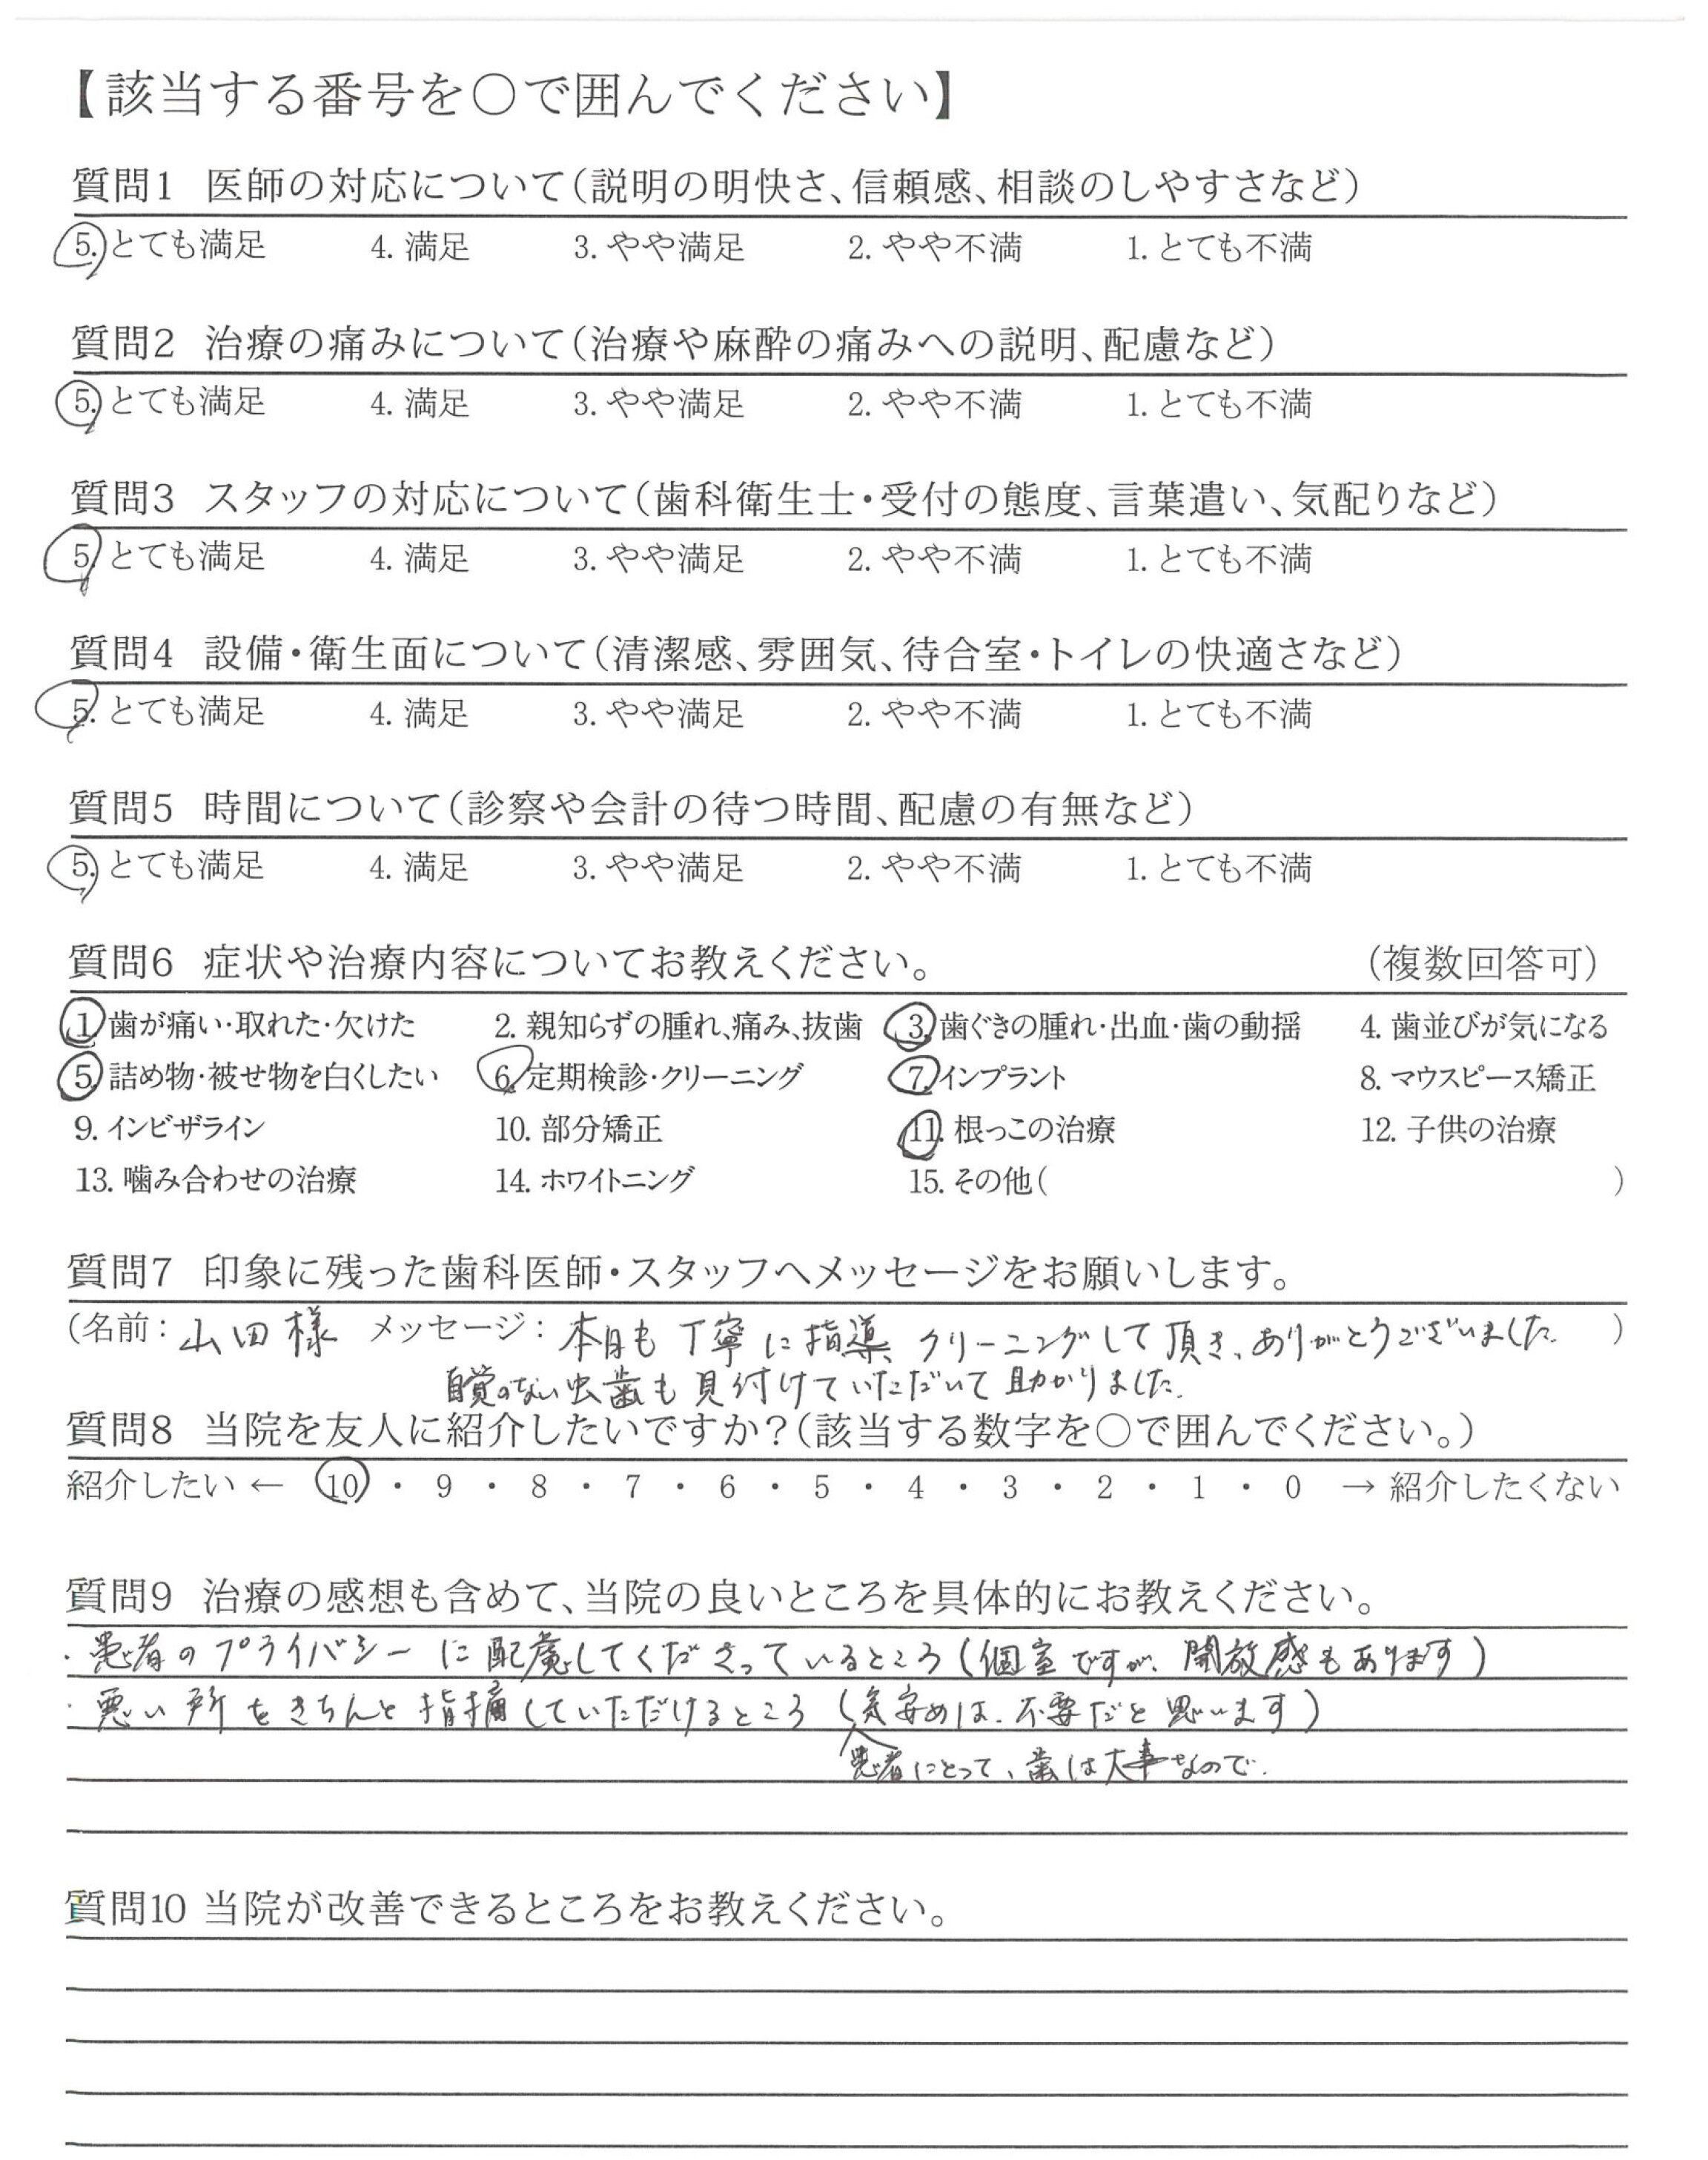 【該当する番号を○で囲んでください】
質問1 医師の対応について(説明の明快さ、信頼感、相談のしやすさなど)
5. とても満足 4. 満足 3. やや満足 2. やや不満 1. とても不満
質問2 治療の痛みについて(治療や麻酔の痛みへの説明、配慮など)
5. とても満足 4. 満足 3. やや満足 2. やや不満 1. とても不満
質問3 スタッフの対応について(歯科衛生士・受付の態度、言葉遣い、気配りなど)
5. とても満足 4. 満足 3. やや満足 2. やや不満 1. とても不満
質問4 設備・衛生面について(清潔感、雰囲気、待合室・トイレの快適さなど)
5. とても満足 4. 満足 3. やや満足 2. やや不満 1. とても不満
質問5 時間について(診察や会計の待つ時間、配慮の有無など)
5. とても満足 4. 満足 3. やや満足 2. やや不満 1. とても不満
質問6 症状や治療内容についてお教えください。 (複数回答可)
1. 歯が痛い・取れた・欠けた 2. 親知らずの腫れ、痛み、抜歯 3. 歯ぐきの腫れ・出血・歯の動揺 4. 歯並びが気になる
5. 詰め物・被せ物を白くしたい 6. 定期検診・クリーニング 7. インプラント 8. マウスピース矯正
9. インビザライン 10. 部分矯正 11. 根っこの治療 12. 子供の治療
13. 噛み合わせの治療 14. ホワイトニング 15. その他( )
質問7 印象に残った歯科医師・スタッフへメッセージをお願いします。
(名前: 山田様 メッセージ: 本日も丁寧に指導、クリーニングして頂き、ありがとうございました。 )
自覚のない虫歯も見付けていただいて助かりました。
質問8 当院を友人に紹介したいですか?(該当する数字を○で囲んでください。)
紹介したい ← 10 ・ 9 ・ 8 ・ 7 ・ 6 ・ 5 ・ 4 ・ 3 ・ 2 ・ 1 ・ 0 → 紹介したくない
質問9 治療の感想も含めて、当院の良いところを具体的にお教えください。
・患者のプライバシーに配慮してくださっているところ(個室ですが、開放感もあります)
・悪い所をきちんと指摘していただけるところ(気安めは、不要だと思います)
患者にとって、歯は大事なので。
質問10 当院が改善できるところをお教えください。